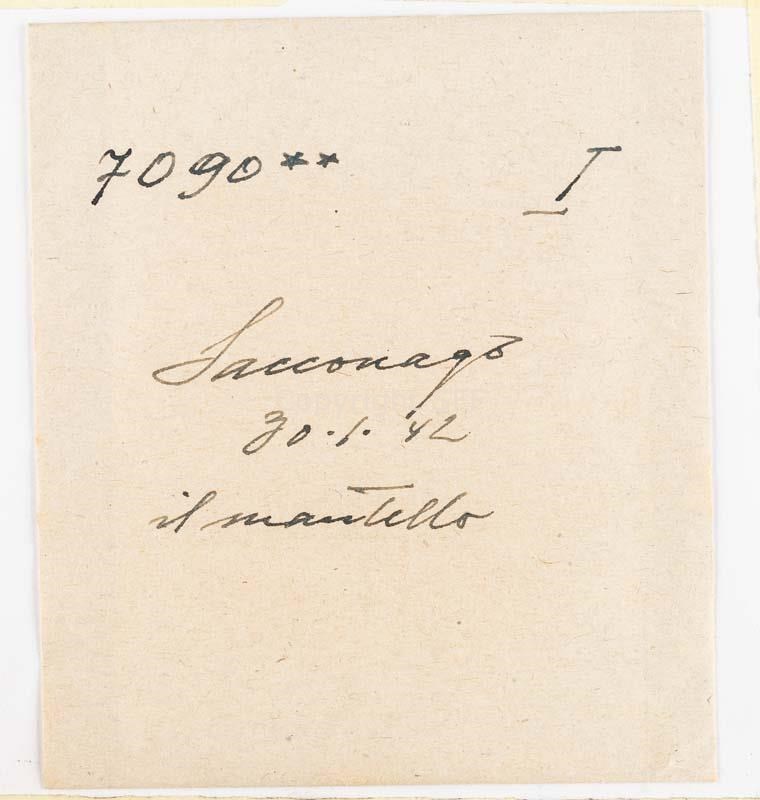 7090** I
Sacconago
30.1.'42
il mantello